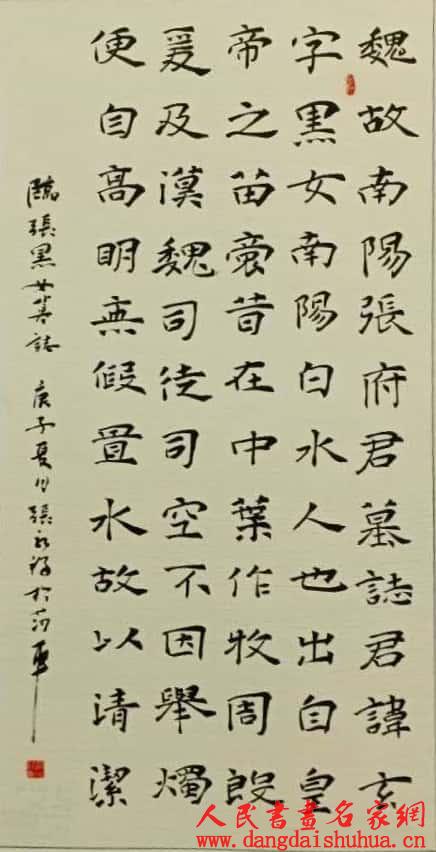 魏故南陽張府君墓誌君諱玄
字黑女南陽白水人也出自皇
帝之苗裔昔在中葉作牧周殷
爰及漢魏司徒司空不因舉燭
便自高明無假置水故以清潔
臨張黑女墓誌 庚子夏月張
人民書畫名家網
www.dangdaishuhua.cn